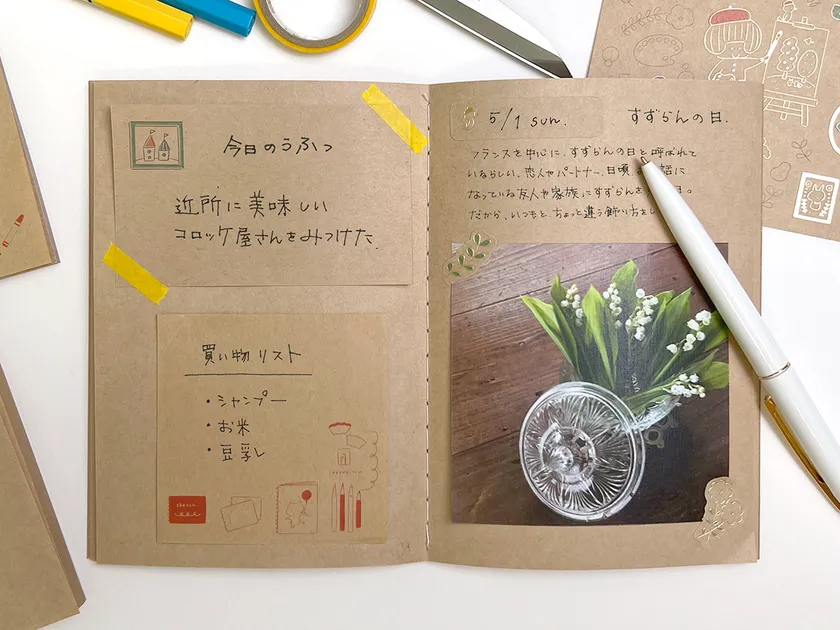 今日のうふっ
近所に美味しい
コロッケ屋さんをみつけた.
買い物リスト
・シャンプー
・お米
・豆乳
sketch
5/1 sun.
すずらんの日.
フランスを中心に、すずらんの日と呼ばれて
いるらしい。恋人やパートナー、日頃、お 話に
なっている友人や家族にすずらんを 日。
だから、いつもと、ちょっと違う飾り方をし